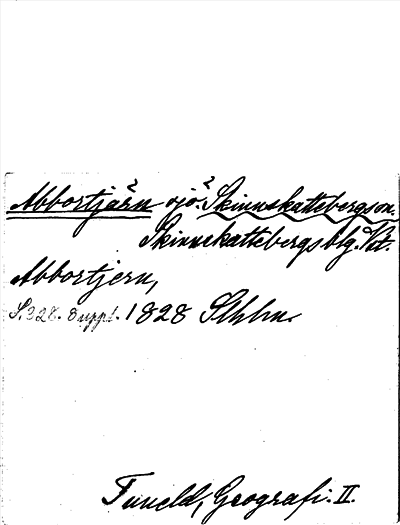 Abbortjärn sjö. Skinnskattebergs sn.
Skinnskattebergs blg. Vt.
Abbortjern,
S. 328. 8 uppl. 1828 Sthlm.
Tuneld, Geografi. II.